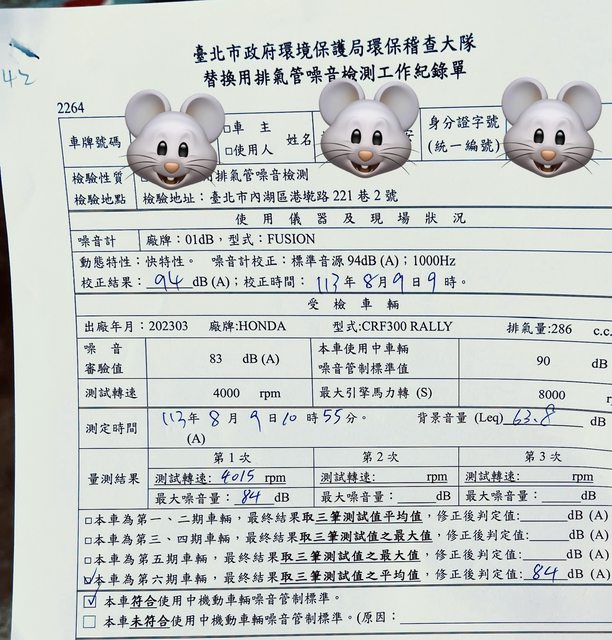 臺北市政府環境保護局環保稽查大隊
替換用排氣管噪音檢測工作紀錄單
2264
車牌號碼 □車 主 □使用人 姓名 身分證字號 (統一編號)
檢驗性質 排氣管噪音檢測
檢驗地點 檢驗地址：臺北市內湖區港墘路221巷2號
使用儀器及現場狀況
噪音計 廠牌：01dB，型式：FUSION
動態特性：快特性。 噪音計校正：標準音源94dB (A)；1000Hz
校正結果：94 dB (A)；校正時間：113年8月9日9時。
受檢車輛
出廠年月：202303 廠牌:HONDA 型式:CRF300 RALLY 排氣量:286 c.c.
噪音審驗值 83 dB (A) 本車使用中車輛噪音管制標準值 90 dB
測試轉速 4000 rpm 最大引擎馬力轉 (S) 8000
測定時間 113年8月9日10時55分。 背景音量 (Leq) 63.8 dB
(A)
量測結果 第1次 第2次 第3次
測試轉速: 4015 rpm 測試轉速: rpm 測試轉速: rpm
最大噪音量： 84 dB 最大噪音量： dB 最大噪音量： dB
□本車為第一、二期車輛，最終結果取三筆測試值平均值，修正後判定值: dB (A)
□本車為第三、四期車輛，最終結果取三筆測試值之最大值，修正後判定值: dB (A)
□本車為第五期車輛，最終結果取三筆測試值之最大值，修正後判定值: dB (A)
☑本車為第六期車輛，最終結果取三筆測試值之平均值，修正後判定值:84 dB (A)
☑ 本車符合使用中機動車輛噪音管制標準。
□ 本車未符合使用中機動車輛噪音管制標準。(原因：